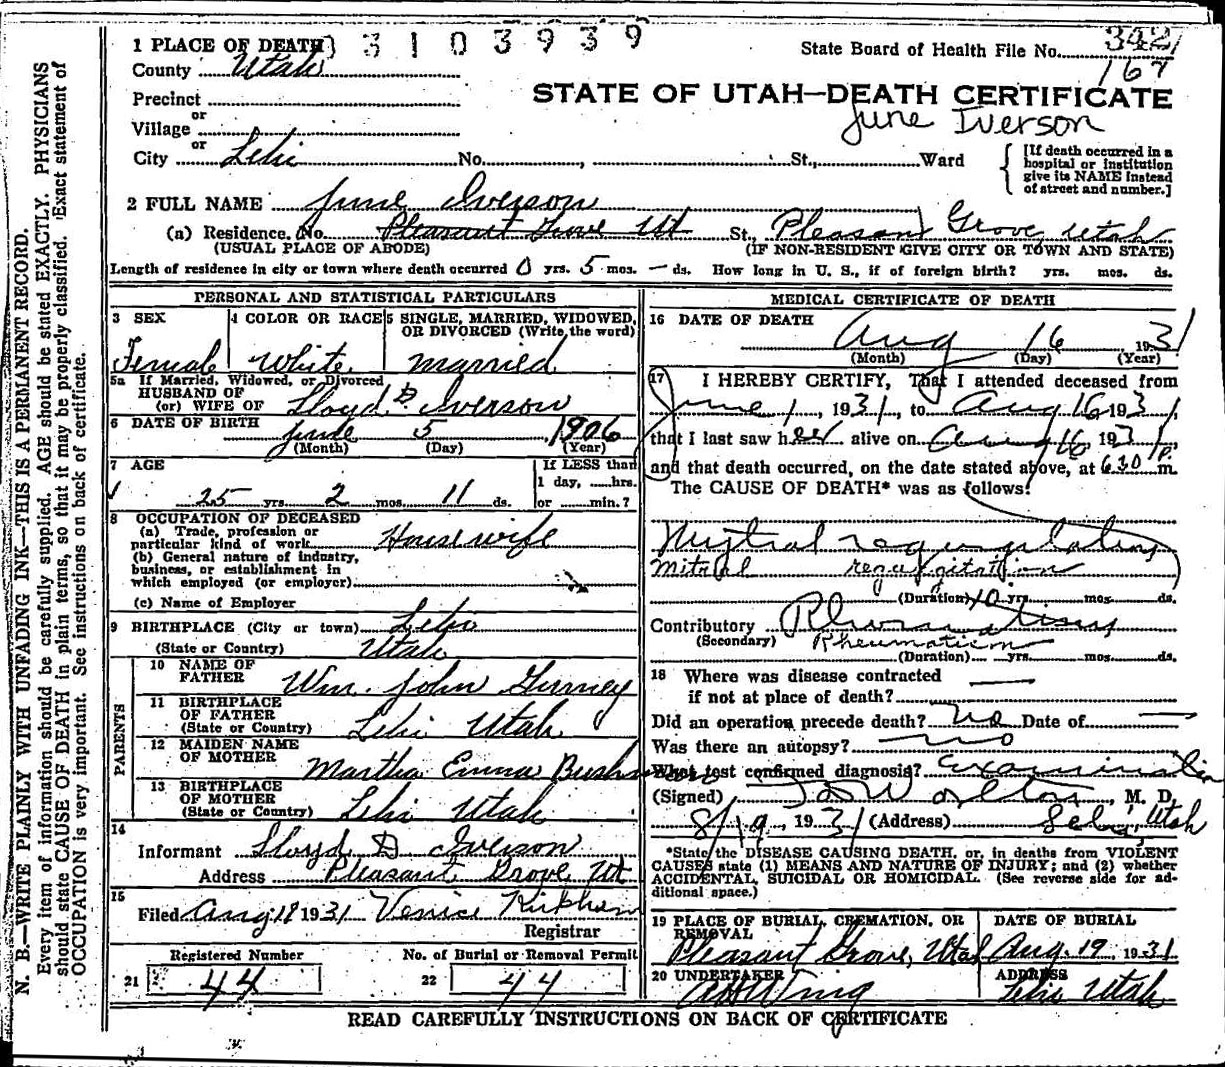 3103939
State Board of Health File No. 342
167
STATE OF UTAH—DEATH CERTIFICATE
June Iverson
1 PLACE OF DEATH
County Utah
Precinct
or
Village
or
City Lehi No. , St., Ward
[If death occurred in a hospital or institution give its NAME instead of street and number.]
2 FULL NAME June Iverson
(a) Residence. No. Pleasant Grove Ut St., Pleasant Grove, Utah
(USUAL PLACE OF ABODE) (IF NON-RESIDENT GIVE CITY OR TOWN AND STATE)
Length of residence in city or town where death occurred 0 yrs. 5 mos. — ds. How long in U. S., if of foreign birth? yrs. mos. ds.
PERSONAL AND STATISTICAL PARTICULARS
3 SEX
Female
4 COLOR OR RACE
White
5 SINGLE, MARRIED, WIDOWED, OR DIVORCED (Write the word)
Married
5a If Married, Widowed, or Divorced
HUSBAND OF
(or) WIFE OF Lloyd D. Iverson
6 DATE OF BIRTH June 5, 1906
(Month) (Day) (Year)
7 AGE
25 yrs. 2 mos. 11 ds.
If LESS than
1 day, ......hrs.
or ......min.?
8 OCCUPATION OF DECEASED
(a) Trade, profession or
particular kind of work Housewife
(b) General nature of industry,
business, or establishment in
which employed (or employer)
(c) Name of Employer
9 BIRTHPLACE (City or town) Lehi
(State or Country) Utah
PARENTS
10 NAME OF FATHER Wm. John Gurney
11 BIRTHPLACE OF FATHER (State or Country) Lehi Utah
12 MAIDEN NAME OF MOTHER Martha Emma
13 BIRTHPLACE OF MOTHER (State or Country) Lehi Utah
14
Informant Lloyd D Iverson
Address Pleasant Grove Ut
15
Filed Aug 18 1931 Venice Kirkham
Registrar
Registered Number
21 44
No. of Burial or Removal Permit
22 44
MEDICAL CERTIFICATE OF DEATH
16 DATE OF DEATH
Aug 16, 1931
(Month) (Day) (Year)
17 I HEREBY CERTIFY, That I attended deceased from
June 1, 1931, to Aug 16 1931,
that I last saw her alive on Aug 16, 1931,
and that death occurred, on the date stated above, at 630 P. m.
The CAUSE OF DEATH* was as follows:
Mitral regurgitation
(Duration) 10 yrs. mos. ds.
Contributory Rheumatism
(Secondary) Rheumatism
(Duration) yrs. mos. ds.
18 Where was disease contracted
if not at place of death? —
Did an operation precede death? No Date of —
Was there an autopsy? no
What test confirmed diagnosis? Examination
(Signed) , M. D.
8/19, 1931 (Address) Lehi, Utah
*State the DISEASE CAUSING DEATH, or, in deaths from VIOLENT
CAUSES state (1) MEANS AND NATURE OF INJURY; and (2) whether
ACCIDENTAL, SUICIDAL OR HOMICIDAL. (See reverse side for ad-
ditional space.)
19 PLACE OF BURIAL, CREMATION, OR REMOVAL
Pleasant Grove, Utah
DATE OF BURIAL
Aug. 19, 1931
20 UNDERTAKER
ADDRESS
Lehi Utah
READ CAREFULLY INSTRUCTIONS ON BACK OF CERTIFICATE
N. B.—WRITE PLAINLY WITH UNFADING INK—THIS IS A PERMANENT RECORD.
Every item of information should be carefully supplied. AGE should be stated EXACTLY. PHYSICIANS
should state CAUSE OF DEATH in plain terms, so that it may be properly classified. Exact statement of
OCCUPATION is very important. See instructions on back of certificate.